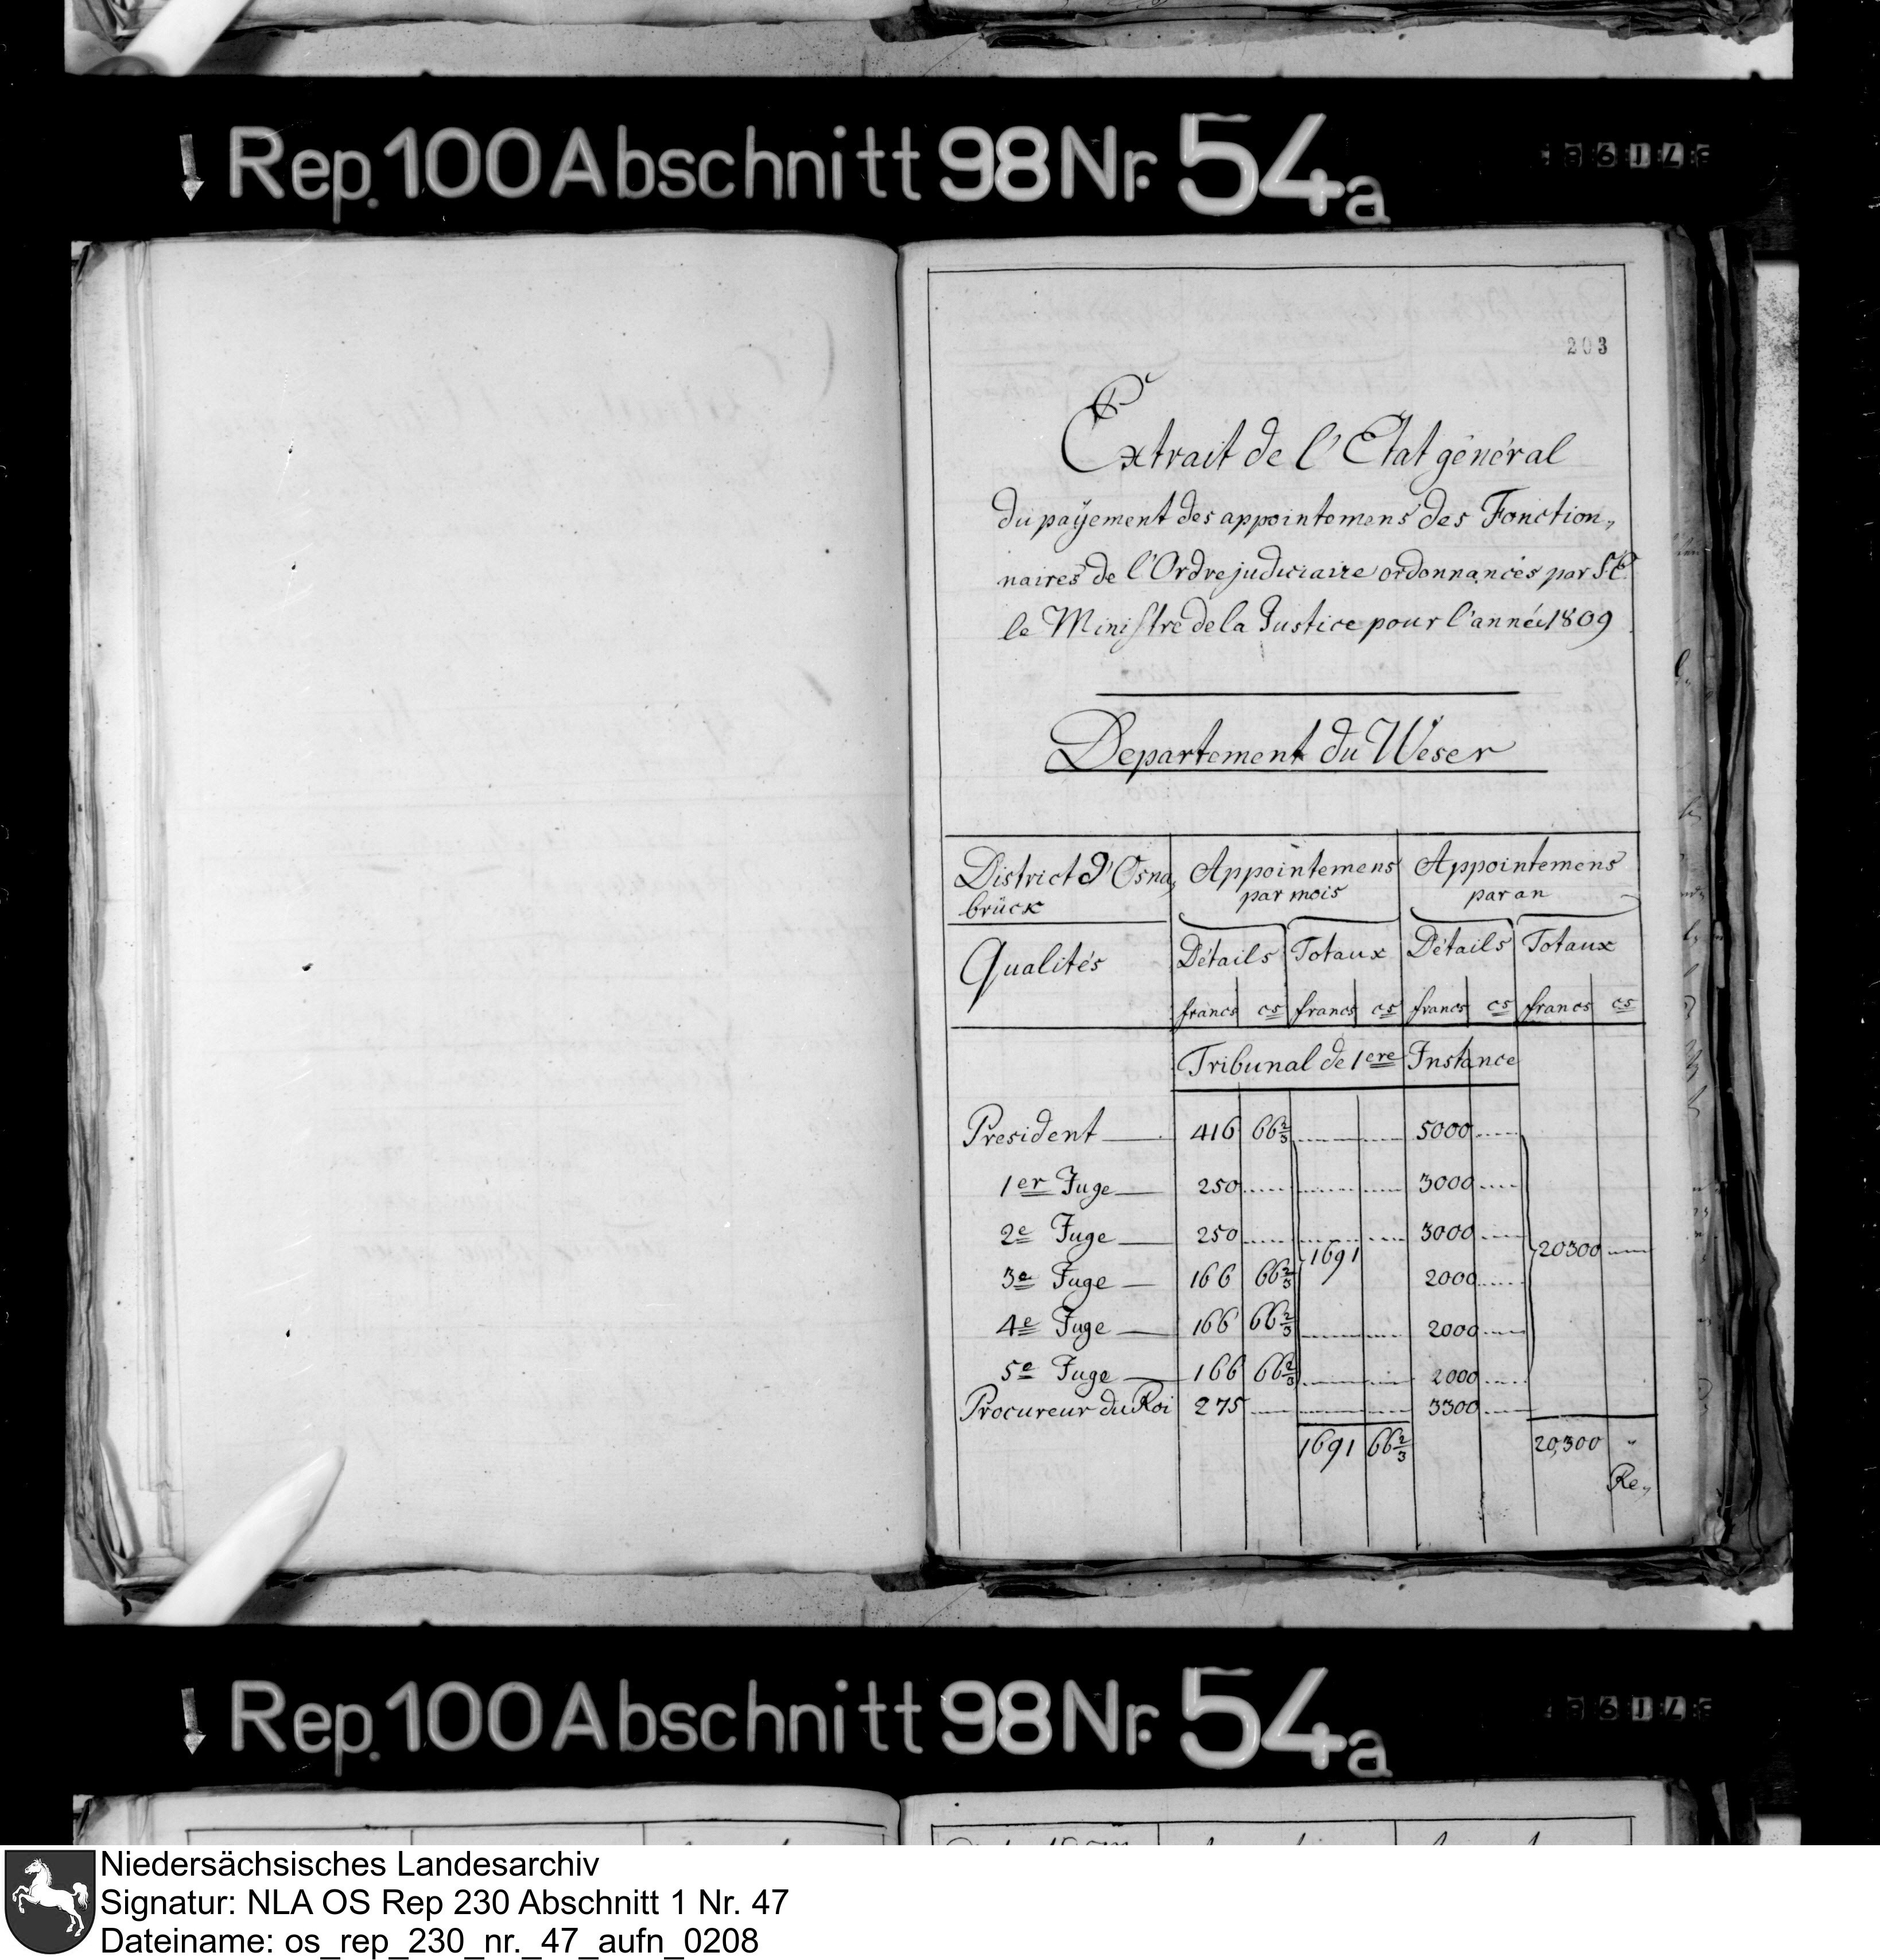 Rep. 100 Abschnitt 98 Nr. 54a
203
Extrait de l'Etat général
du payement des appointemens des Fonction„
naires de l'Ordre judiciaire ordonnancés par S.E.
le Ministre de la Justice pour l'année 1809
Departement du Weser
District d'Osna„ Appointemens Appointemens
brück par mois par an
Qualités Détails Totaux Détails Totaux
francs cs francs cs francs cs francs cs
Tribunal de 1ere Instance
President 416 66 2/3 5000
1er Juge 250 3000
2e Juge 250 3000
1691 20300
3e Juge 166 66 2/3 2000
4e Juge 166 66 2/3 2000
5e Juge 166 66 2/3 2000
Procureur du Roi 275 3300
1691 66 2/3 20,300 "
Re„
Rep. 100 Abschnitt 98 Nr. 54a
Niedersächsisches Landesarchiv
Signatur: NLA OS Rep 230 Abschnitt 1 Nr. 47
Dateiname: os_rep_230_nr._47_aufn_0208